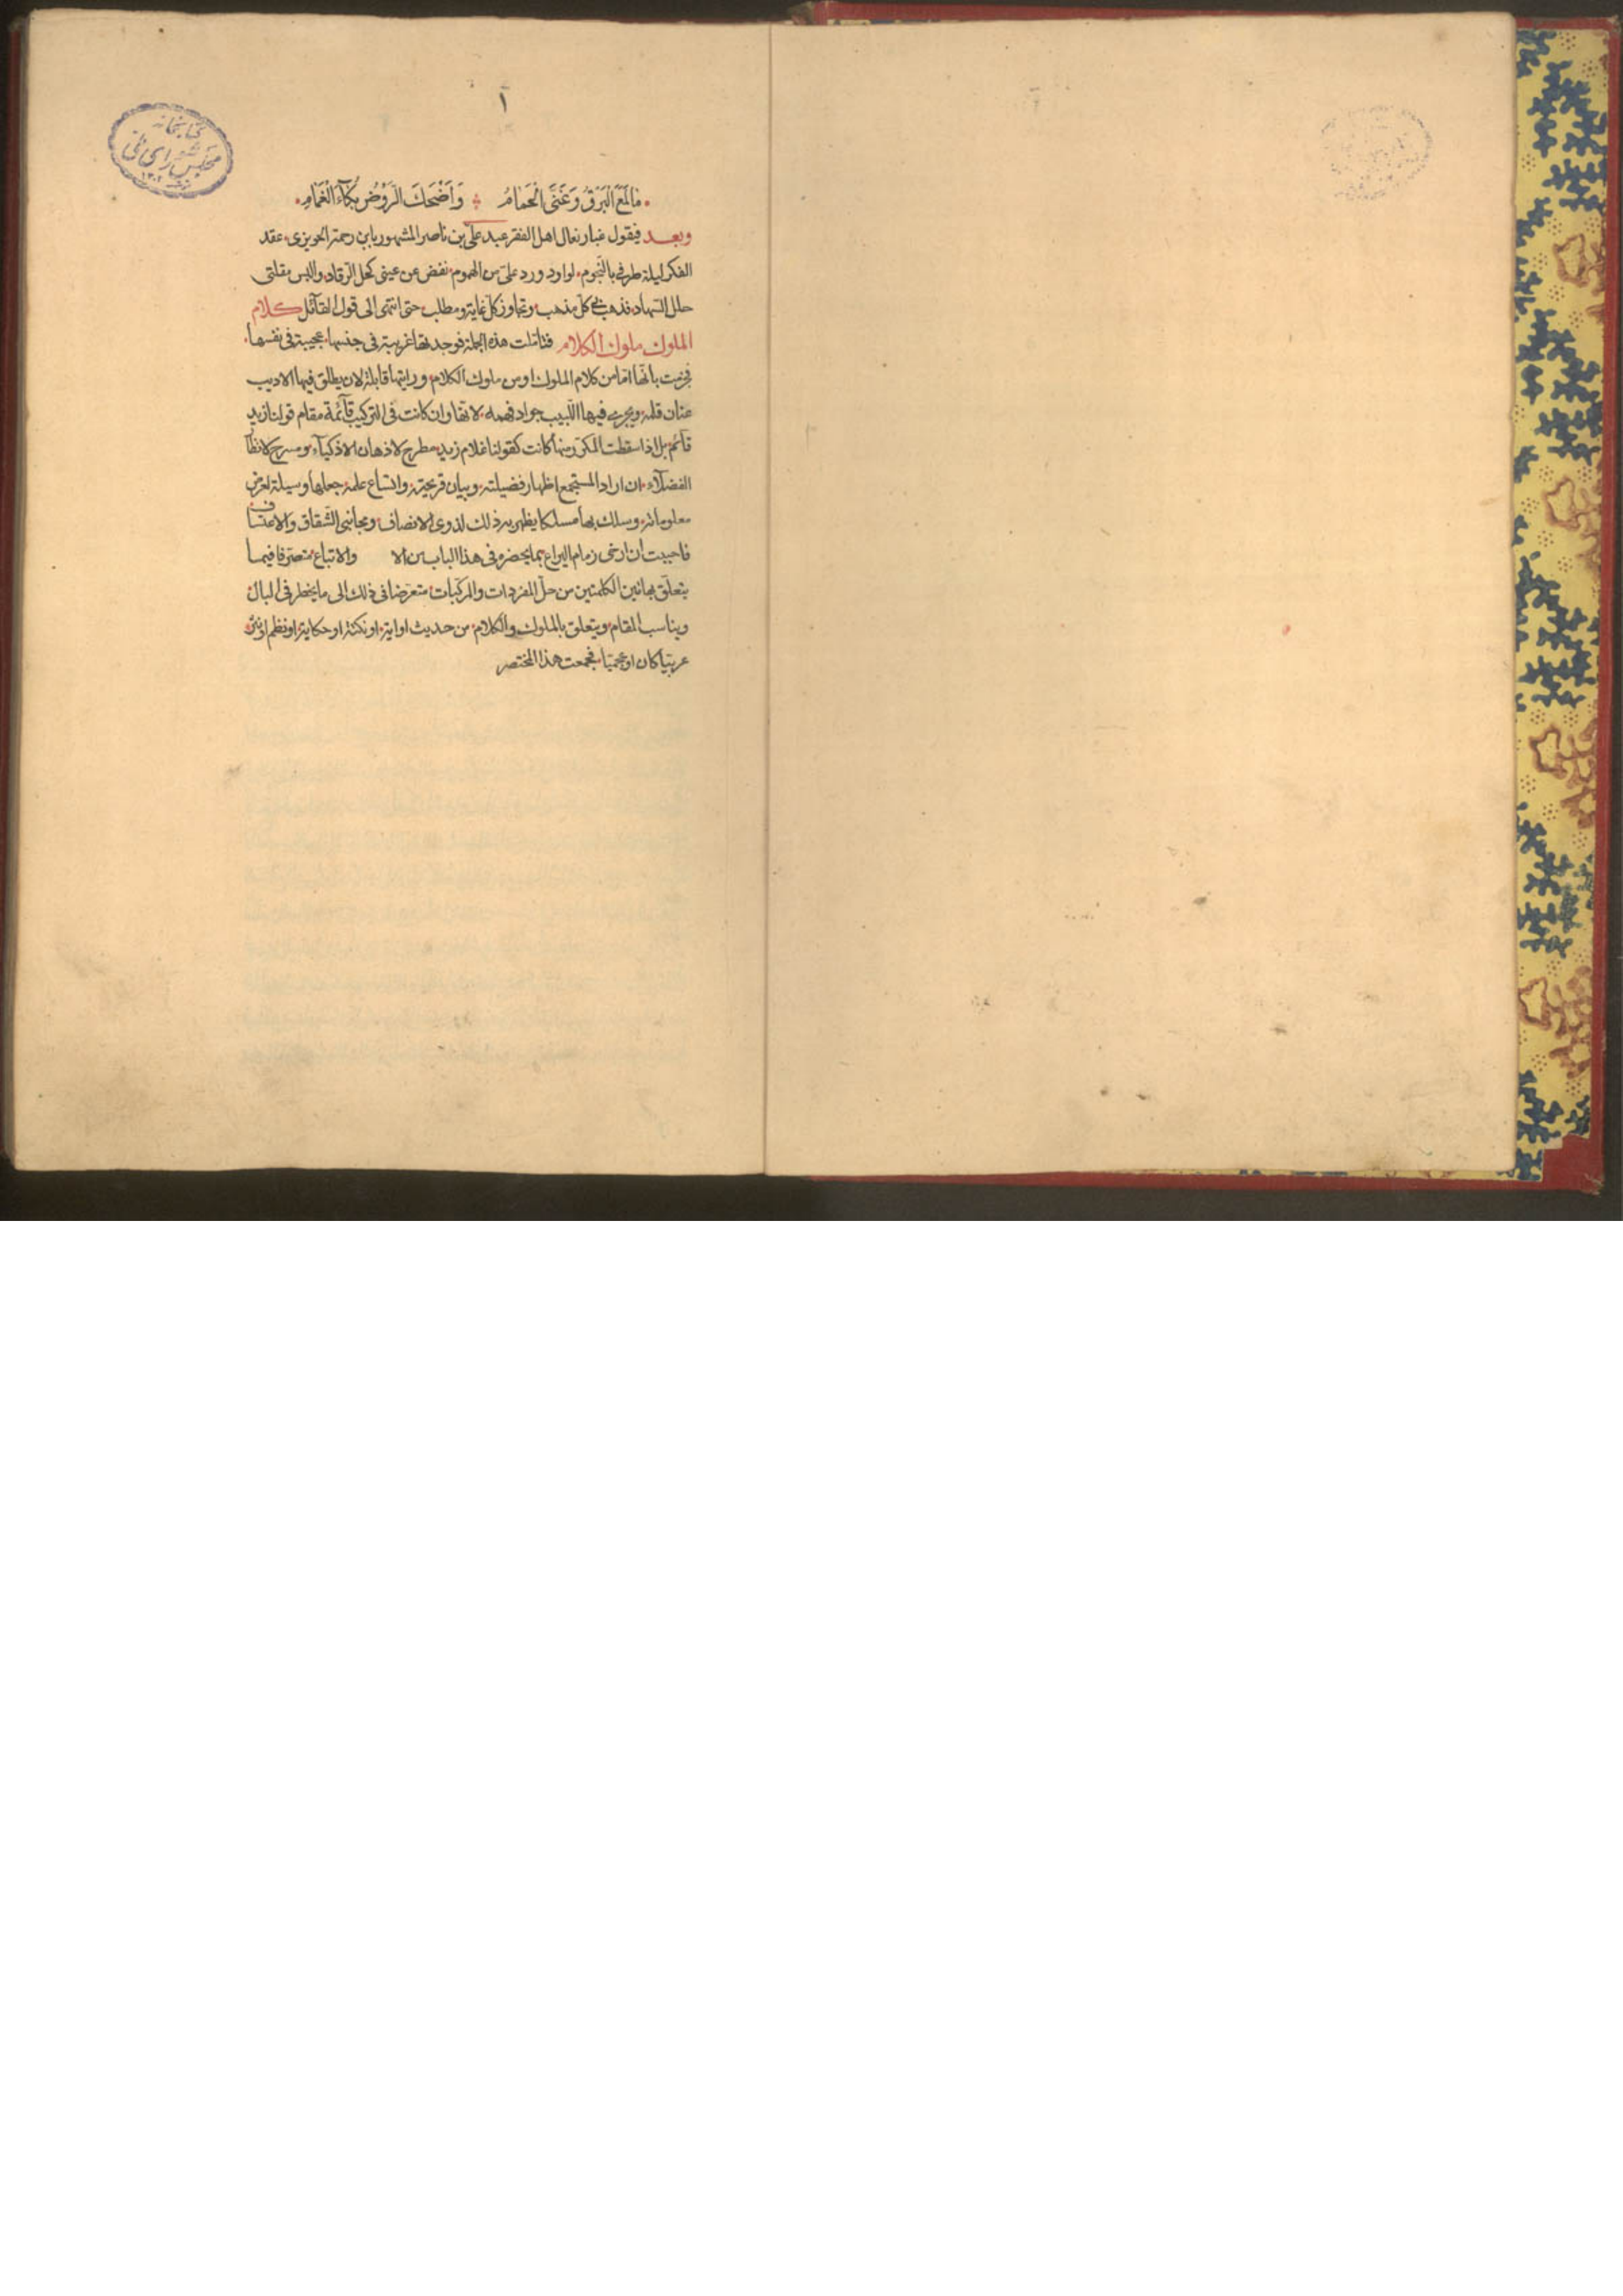 ١
كتابخانه
مجلس شورای ملی
مَا لَمَعَ الْبَرْقُ وَغَنَّى الْحَمَامُ وَاَضْحَكَ الرَّوْضُ بُكَاءَ الْغَمَامِ
وبعد فيقول غبار نعال اهل الفقر عبد علی بن ناصر المشهور بابن رحمة الحويزی عقد
الفكر ليلة طرفی بالنجوم لوارد ورد علیّ من الهموم نفض عن عينی كحل الرقاد والبس مقلتی
حلل السهاد فذهب بی كل مذهب وتجاوز كل غاية ومطلب حتی انتهی الی قول القآئل كلام
الملوك ملوك الكلام فتاملت هذه الجملة فوجدتها غريبة فی جنسها عجيبة فی نفسها
فجزمت بانّها اما من كلام الملوك او من ملوك الكلام ورايتها قابلة لان يطلق فيها الاديب
عنان قلمه ويجری فيها اللبيب جواد فهمه لانها وان كانت فی التركيب قآئمة مقام قولنا زيد
قآئم بل اذا سقطت المكرّر منها كانت كقولنا غلام زيد مطرح لاذهان الاذكيآء ومسرح لانظار
الفضلآء ان اراد المستجمع اظهار فضيلته وبيان قريحته واتساع علمه جعلها وسيلة لعرض
معلوماته وسلك بها مسلكا يظهر به ذلك لذوی الانصاف ومجانبی الشقاق والاعتساف
فاحببت ان ارخی زمام اليراع بما يحضره فی هذا الباب من الا والاتباع متصرفا فيما
يتعلّق بهاتين الكلمتين من حلّ المفردات والمركّبات متعرّضا فی ذلك الی ما يخطر فی البال
ويناسب المقام ويتعلق بالملوك والكلام من حديث او اية او نكتة او حكاية او نظم او نثر
عربيّا كان او عجميّا فجمعت هذا المختصر